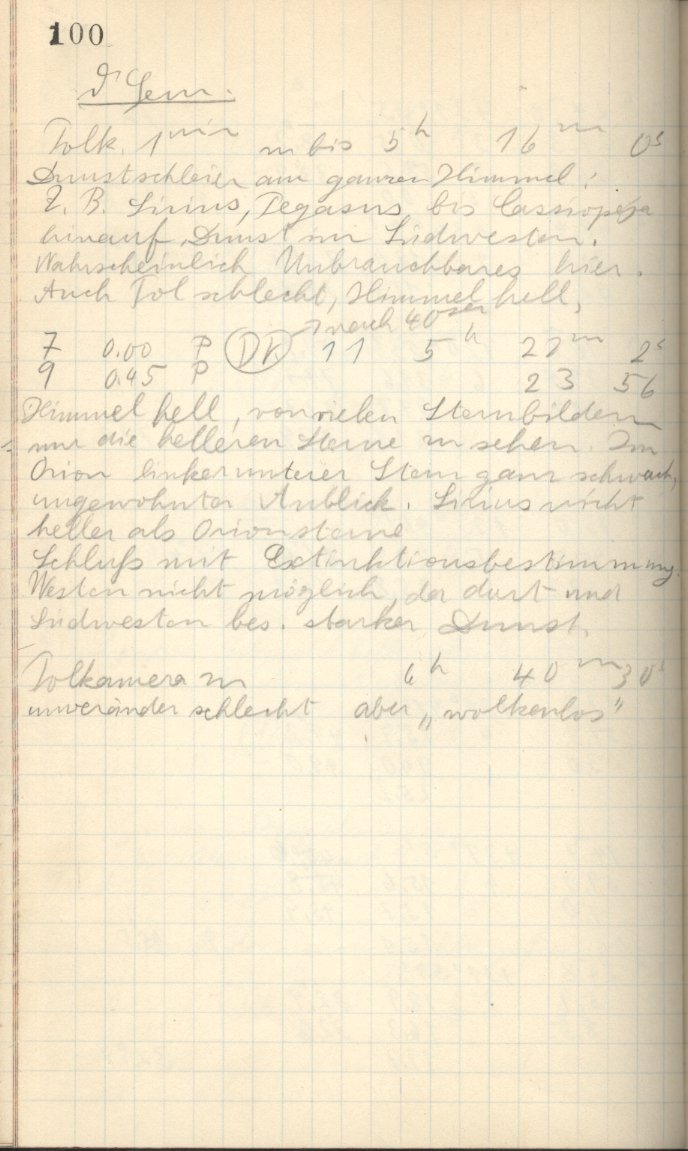 100
Gem.
Polk. 1 min zu bis 5h 16m 0s
Dunstschleier am ganzen Himmel,
Z. B. Sirius, Pegasus bis Cassiopeja
hinauf, Dunst im Südwesten.
Wahrscheinlich Unbrauchbares hier.
Auch Pol schlecht, Himmel hell,
nach 40 sec
7 0.00 P DK 11 5h 22m 2s
9 0.45 P 23 56
Himmel hell, von vielen Sternbildern
nur die helleren Sterne zu sehen. Im
Orion linker unterer Stern ganz schwach,
ungewohnter Anblick. Sirius nicht
heller als Orionsterne
Schluß mit Extinktionsbestimmung.
Westen nicht möglich, da dort und
Südwesten bes. starker Dunst.
Polkamera zu 6h 40m 30s
unverändert schlecht aber „wolkenlos"